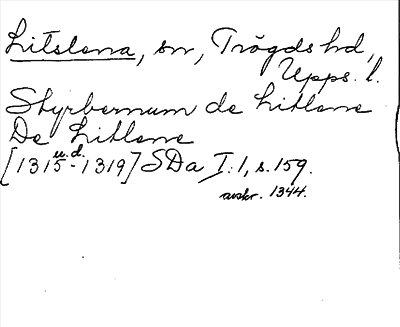 Litslena, sn, Trögds hd,
Upps. l.
Styrbernum de Litlene
De Litlene
[1315 u.d. - 1319] SDa I:1, s. 159.
avskr. 1344.